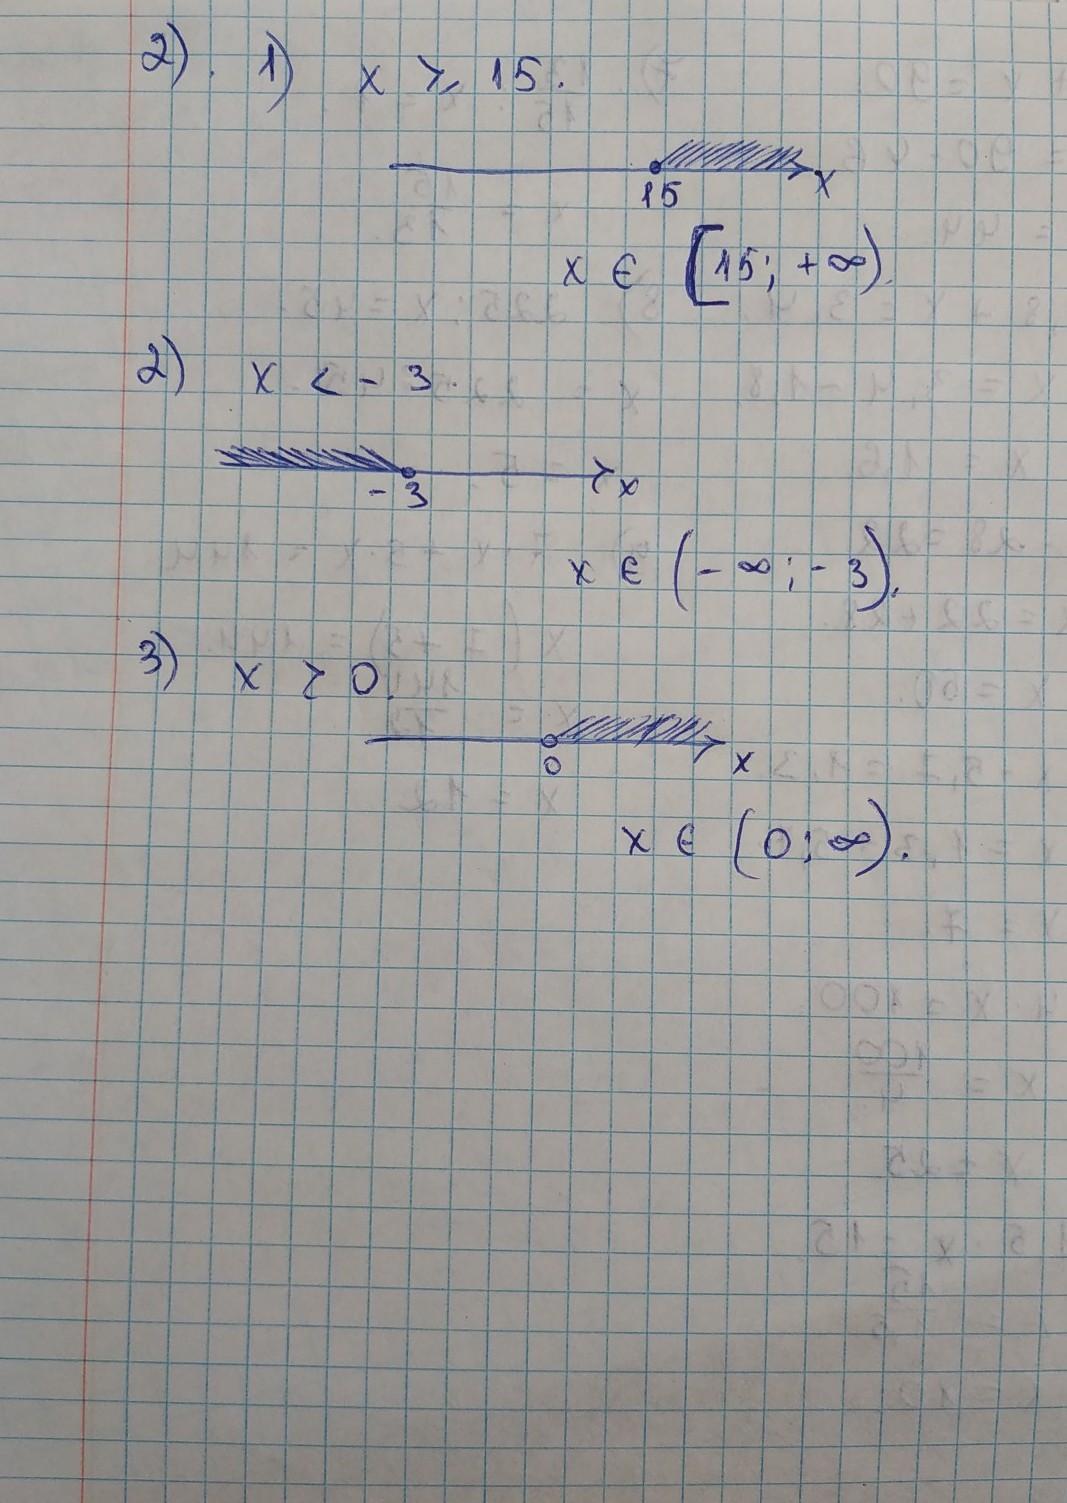 2). 1) x ⩾ 15.
15 x
x ∈ [15; +∞).
2) x < -3.
-3 x
x ∈ (-∞; -3).
3) x > 0.
0 x
x ∈ (0; ∞).